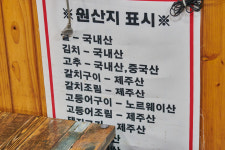 ※원산지 표시※
쌀 - 국내산
김치 - 국내산
고추 - 국내산,중국산
갈치구이 - 제주산
갈치조림 - 제주산
고등어구이 - 노르웨이산
고등어조림 - 제주산
- 제주산